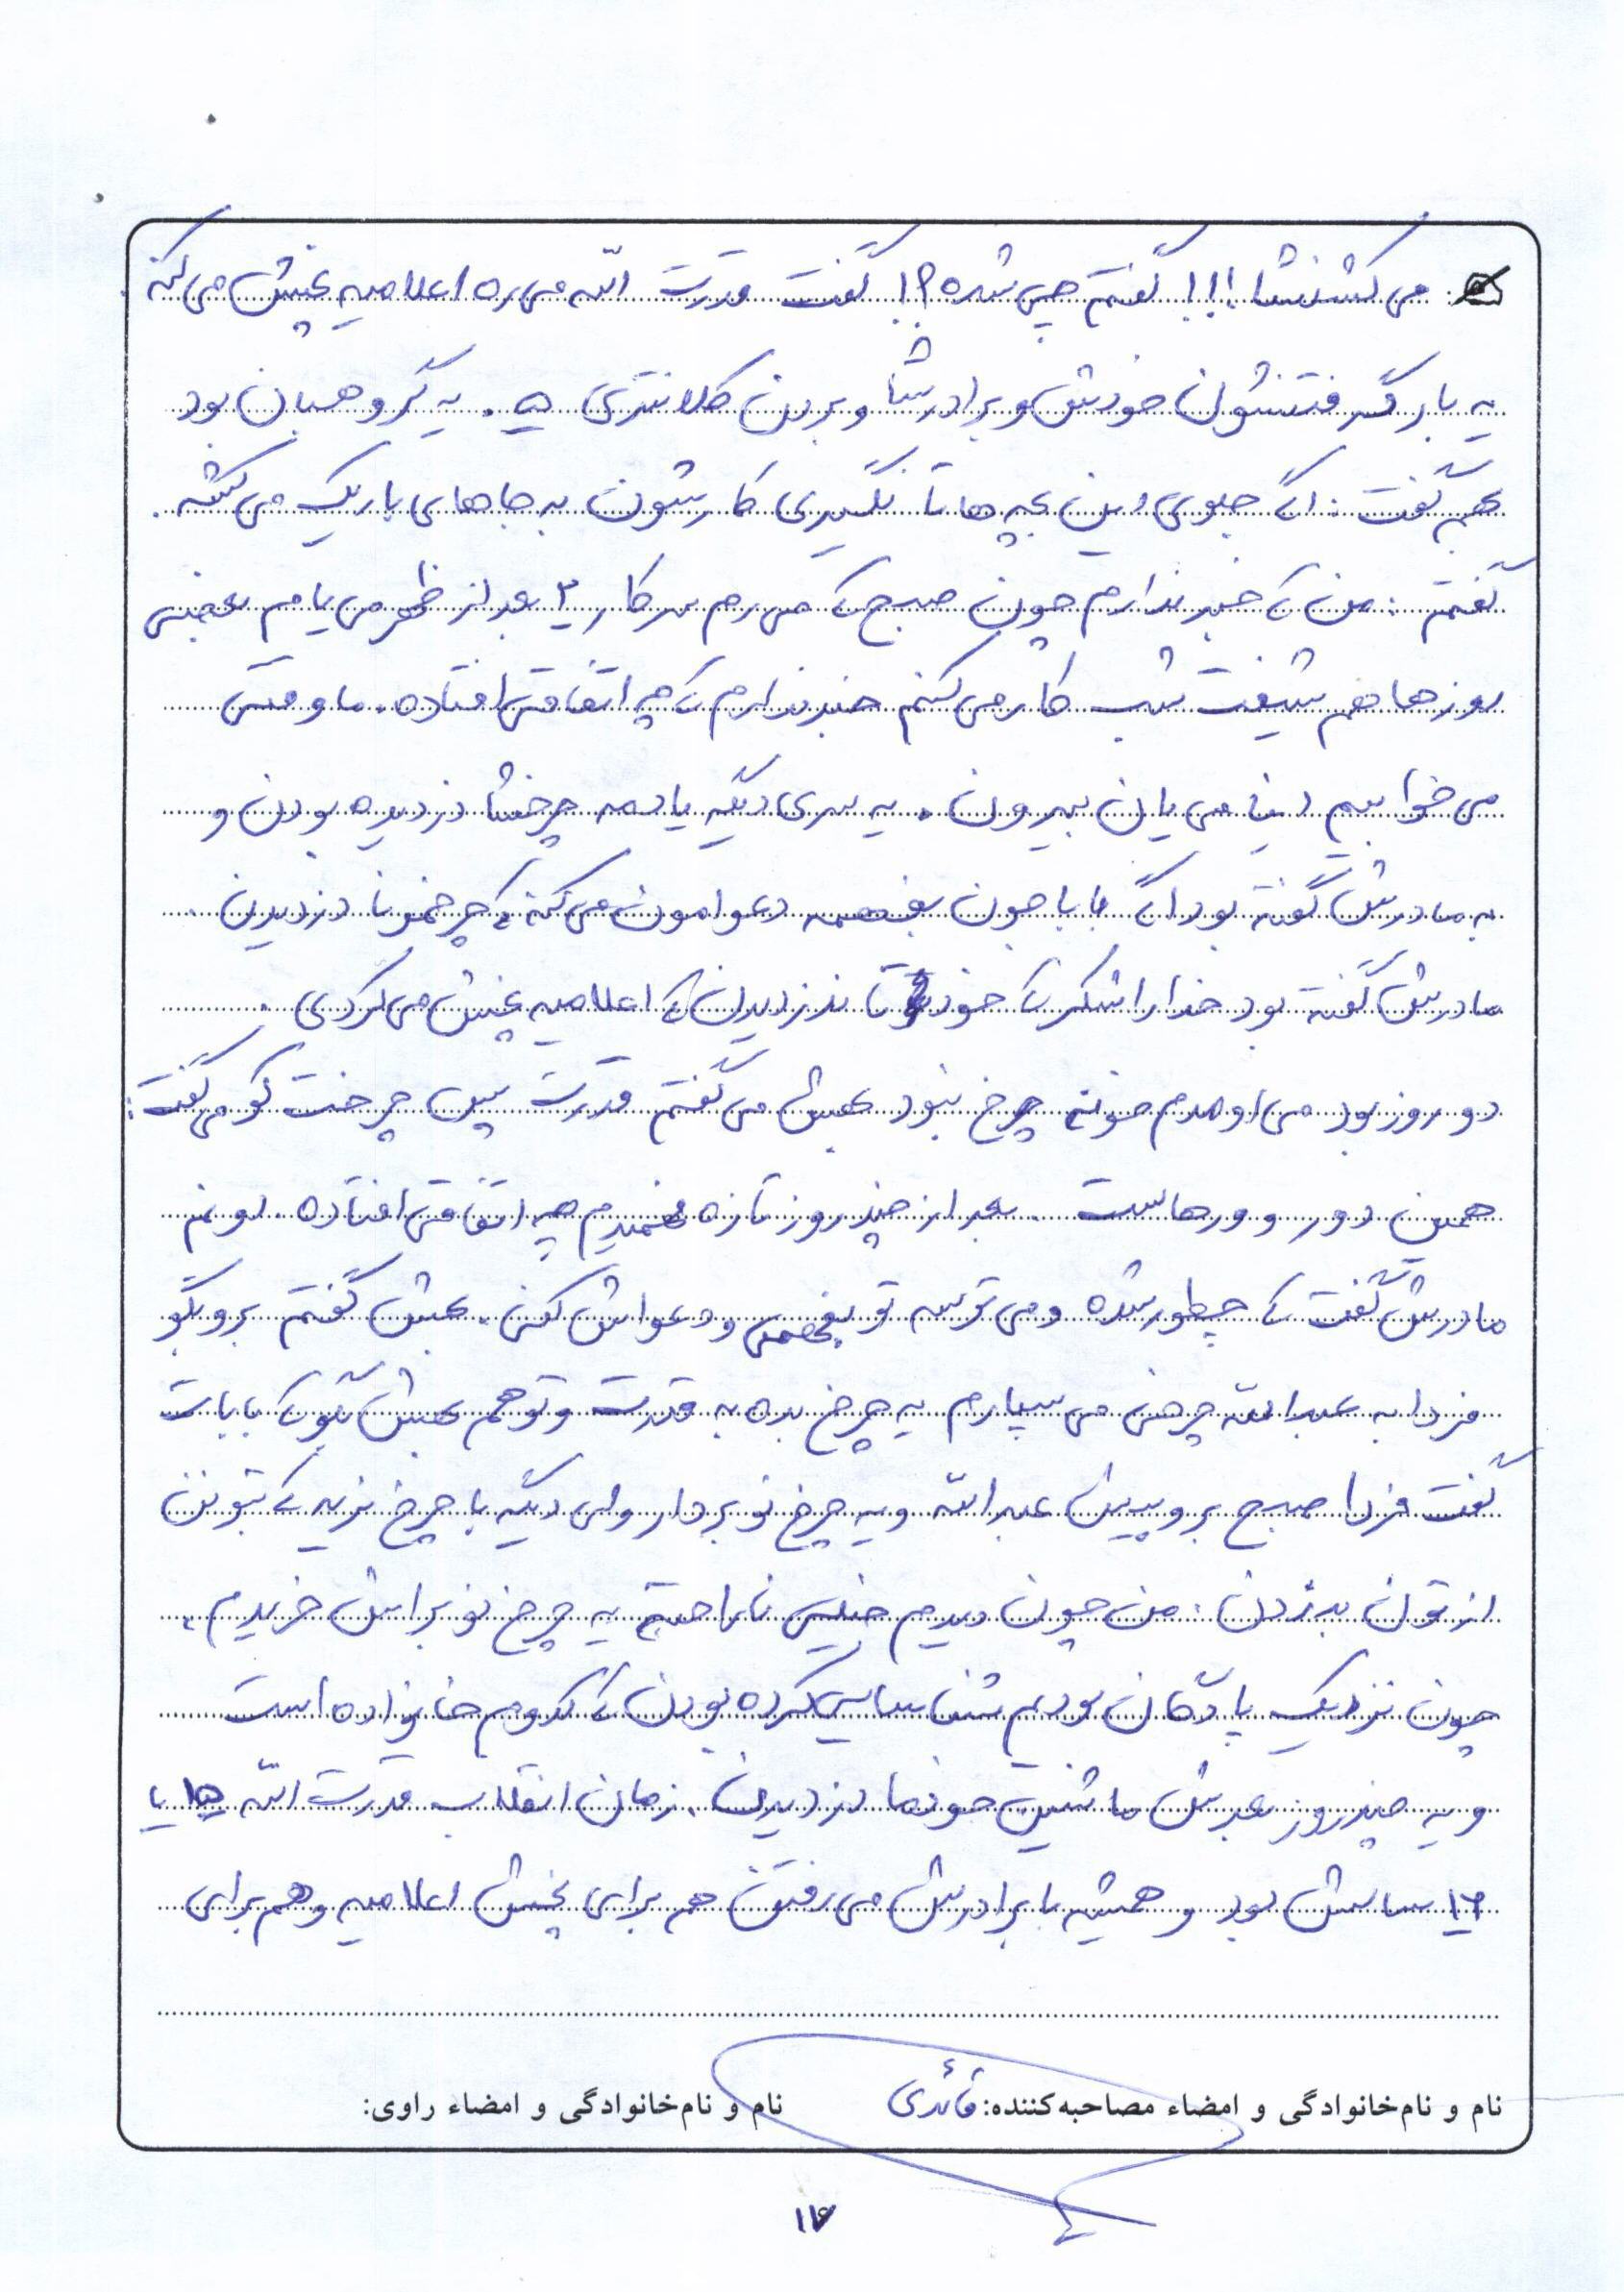 می‌کشنشا!!! گفتم چی شده؟! گفت قدرت الله می‌ره اعلامیه پخش می‌کنه
یه بار گرفتنشون خودش و برادرشا و بردن کلانتری ۵. یه گروهبان بود
بهم گفت: اگه جلوی این بچه‌ها تا نگیری کارشون به جاهای باریک می‌کشه.
گفتم: من که خبر ندارم چون صبح که می‌رم سرکار ۲ بعد از ظهر می‌یام بعضی
روزها هم شیفت شب کار می‌کنم خبر ندارم که چه اتفاقی افتاده. ما وقتی
می‌خوابیم اینا می‌یان بیرون. یه سری دیگه یادمه چرخشا دزدیده بودن و
به مادرش گفته بود اگه باباجون بفهمه دعوامون می‌کنه که چرخمونا دزدیدن
مادرش گفته بود خدا را شکر که خودتا ندزدیدن که اعلامیه پخش می‌کردی.
دو روز بود می‌اومدم خونه چرخ نبود بهش می‌گفتم قدرت پس چرخت کو می‌گفت:
همین دور و ورهاست. بعد از چند روز تازه فهمیدم چه اتفاقی افتاده. اونم
مادرش گفت که چطور شده و می‌ترسه تو بفهمی و دعواش کنی. بهش گفتم برو بگو
فردا به عبدالله چرخی می‌سپارم یه چرخ بده به قدرت و تو هم بهش بگو که بابات
گفت فردا صبح برو پیش عبدالله و یه چرخ نو بردار ولی دیگه با چرخ نریه که بتونن
ازتون بدزدن. من چون دیدم خیلی ناراحته یه چرخ نو براش خریدم.
چون نزدیک پادگان بودیم شناسایی کرده بودن که کدوم خانواده است
و یه چند روز بعدش ماشین خودما دزدیدن. زمان انقلاب قدرت الله ۱۵ یا
۱۶ سالش بود و همیشه با برادرش می‌رفتن هم برای پخش اعلامیه و هم برای
نام و نام‌خانوادگی و امضاء مصاحبه‌کننده: قائدی نام و نام‌خانوادگی و امضاء راوی:
۱۷